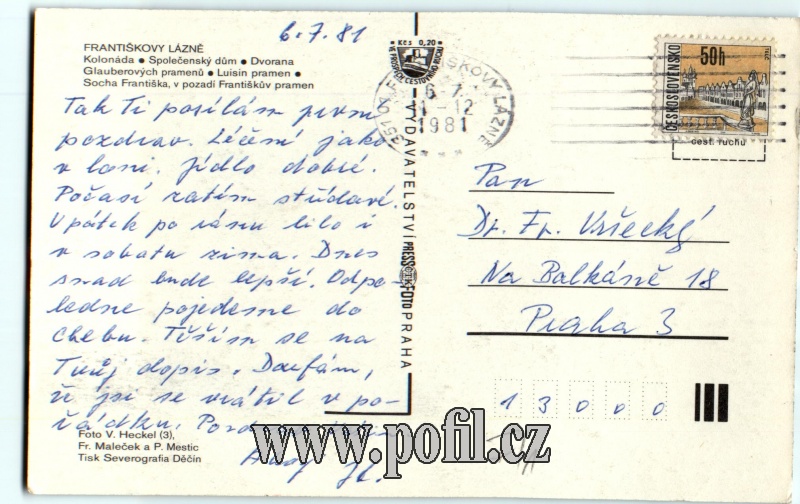 6.7.81
FRANTIŠKOVY LÁZNĚ
Kolonáda ● Společenský dům ● Dvorana
Glauberových pramenů ● Luisin pramen ●
Socha Františka, v pozadí Františkův pramen
Tak Ti posílám první
pozdrav. Léčení jako
v loni. Jídlo dobré.
Počasí zatím střídavé.
V pátek po ránu lilo i
v sobotu zima. Dnes
snad bude lepší. Odpo-
ledne pojedeme do
Chebu. Těším se na
Tvůj dopis. Doufám,
ži jsi se vrátil v po-
řádku.
Foto V. Heckel (3),
Fr. Maleček a P. Mestic
Tisk Severografia Děčín
Kčs 0,20
VE PROSPĚCH CESTOVNÍHO RUCHU
VYDAVATELSTVÍ PRESSFOTO PRAHA
351 01 FRANTIŠKOVY LÁZNĚ
6.7.
-12
1981
ČESKOSLOVENSKO
50h
cest. ruchu
Pan
Dr. Fr. Všecký
Na Balkáně 18
Praha 3
1 3 0 0 0
www.pofil.cz